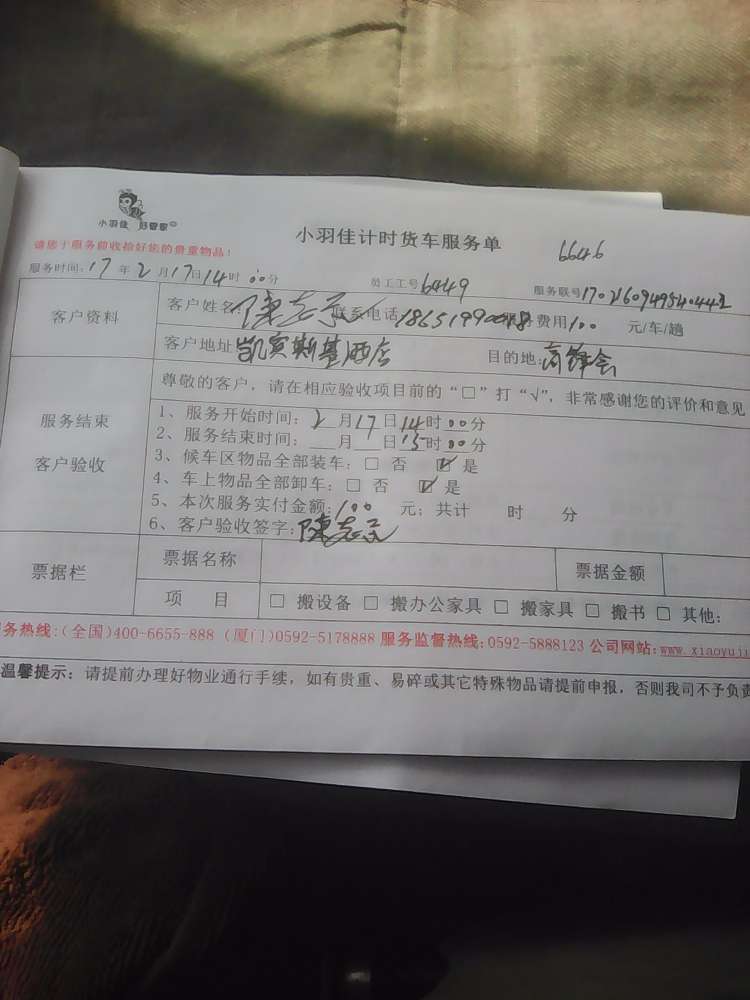 小羽佳 好管家
请您于服务前收拾好您的贵重物品!
小羽佳计时货车服务单 6646
服务时间:17年2月17日14时00分 员工工号6449 服务联号
客户资料
客户姓名 陳志 联系电话 务费用100 元/车/趟
客户地址 凯宾斯基酒店 目的地:
服务结束
客户验收
尊敬的客户,请在相应验收项目前的“□”打“√”,非常感谢您的评价和意见
1、服务开始时间:2月17日14时00分
2、服务结束时间:__月__日15时00分
3、候车区物品全部装车:□ 否 ☑ 是
4、车上物品全部卸车:□ 否 ☑ 是
5、本次服务实付金额:100 元;共计 时 分
6、客户验收签字:陳志
票据栏
票据名称 票据金额
项 目 □ 搬设备 □ 搬办公家具 □ 搬家具 □ 搬书 □ 其他:
务热线:(全国)400-6655-888 (厦门)0592-5178888 服务监督热线:0592-5888123 公司网站:www.xiaoyuji
温馨提示:请提前办理好物业通行手续,如有贵重、易碎或其它特殊物品请提前申报,否则我司不予负责